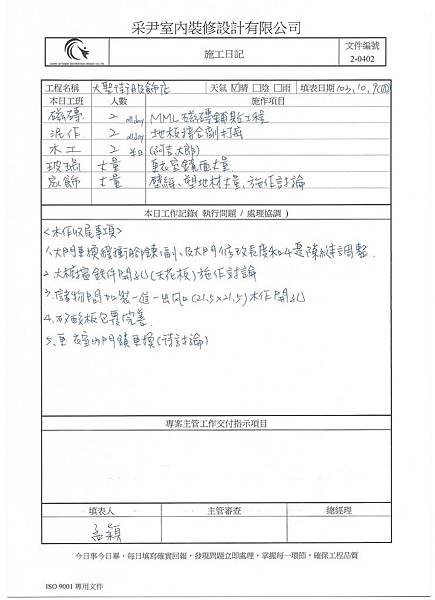 采尹室內裝修設計有限公司
施工日記
文件編號
2-0402
工程名稱 大聖街服飾店 天氣 ☑晴 □陰 □雨 填表日期 103.10.9(四)
本日工班 人數 施作項目
磁磚 2 allday MML磁磚鋪貼工程
泥作 2 allday 地板接合剔打底
木工 2 半日 (阿吉、大郎)
玻璃 丈量 更衣室鏡面丈量
家飾 丈量 壁紙、塑地材丈量、施作討論
本日工作記錄 ( 執行問題 / 處理協調 )
<木作收尾事項>
1. 大門更換緩衝鉸鍊 及大門修改長度和 調整.
2. 大櫥窗鐵件開孔(天花板)施作討論
3. 儲物間加裝一進一出風口(21.5x21.5)木作開孔
4. 矽酸板包覆完善.
5. 更衣室內門鎖更換(待討論)
專案主管工作交付指示項目
填表人 主管審查 總經理
孟穎
今日事今日畢，每日填寫確實回報，發現問題立即處理，掌握每一環節，確保工程品質
ISO 9001 專用文件